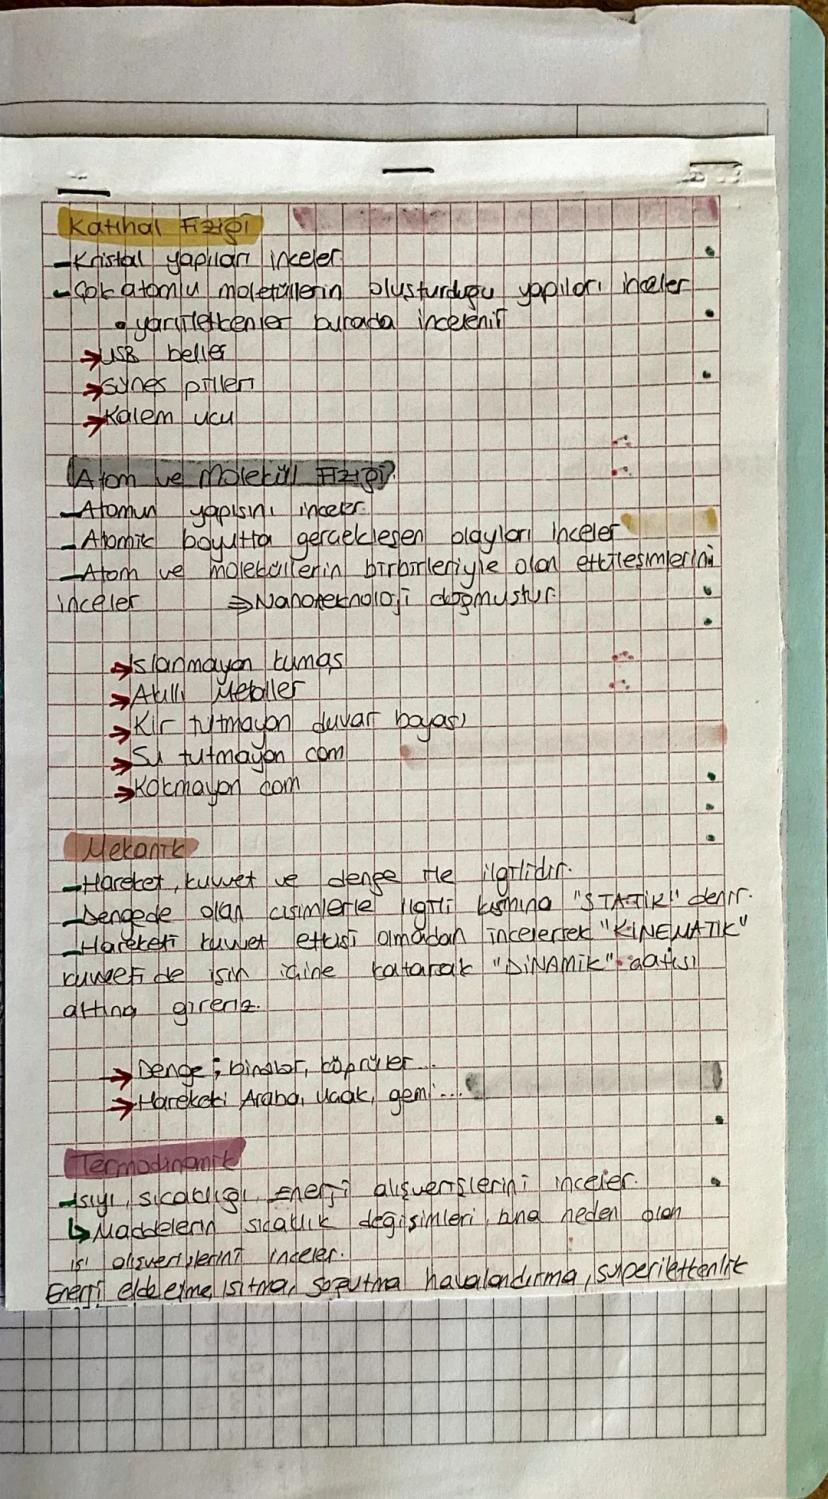 Katıhal Fiziği
- Kristal yapıları inceler
- Çok atomlu moleküllerin oluşturduğu yapıları inceler
• yarıiletkenler burada incelenir
→ USB bellek
→ güneş pilleri
→ Kalem ucu
Atom ve Molekül Fiziği
- Atomun yapısını inceler
- Atomik boyutta gerçekleşen olayları inceler
- Atom ve moleküllerin birbirleriyle olan etkileşimlerini
inceler ⇒ Nanoteknoloji doğmuştur.
→ Islanmayan kumaş
→ Akıllı Metaller
→ Kir tutmayan duvar boyası
→ Su tutmayan cam
→ Kokmayan cam
Mekanik
- Hareket, kuvvet ve denge ile ilgilidir.
- Dengede olan cisimlerle ilgili kısmına "STATİK" denir.
- Hareketi kuvvet etkisi olmadan incelersek "KİNEMATİK"
kuvveti de işin içine katarak "DİNAMİK" çatısı
altına gireriz.
→ Denge; binalar, köprüler...
→ Hareketi Araba, Uçak, gemi...
Termodinamik
- Isıyı, sıcaklığı, Enerji alışverişlerini inceler.
↳ Maddelerin sıcaklık değişimleri, buna neden olan
ısı alışverişlerini inceler.
Enerji elde etme, ısıtma, soğutma havalandırma, süperiletkenlik